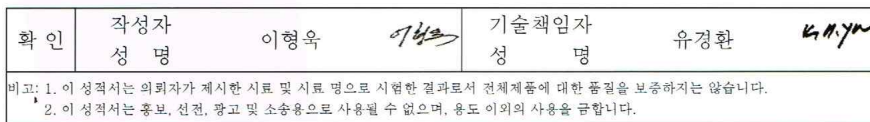 확 인 작성자 성 명 이형욱 이형욱 기술책임자 성 명 유경환 K.H.Yu
비고: 1. 이 성적서는 의뢰자가 제시한 시료 및 시료 명으로 시험한 결과로서 전체제품에 대한 품질을 보증하지는 않습니다.
2. 이 성적서는 홍보, 선전, 광고 및 소송용으로 사용될 수 없으며, 용도 이외의 사용을 금합니다.